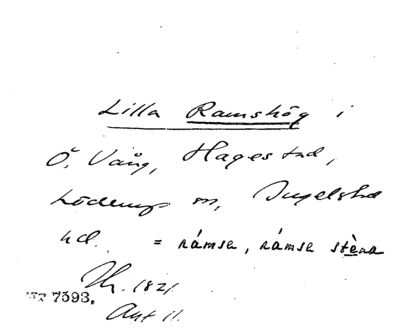 Lilla Ramshög i
Ö. Vång, Hagestad,
Löderups sn, Ingelstad
hd. = rámsa, rámsa stèna
Th. 1821
7593.
Ant 11.